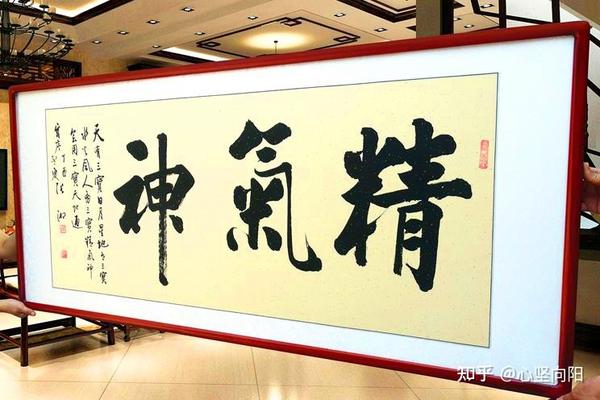 精氣神
天有三寶日月星地有三寶
水火風人有三寶精氣神
用三寶天地通
丁酉
知乎 @心坚向阳